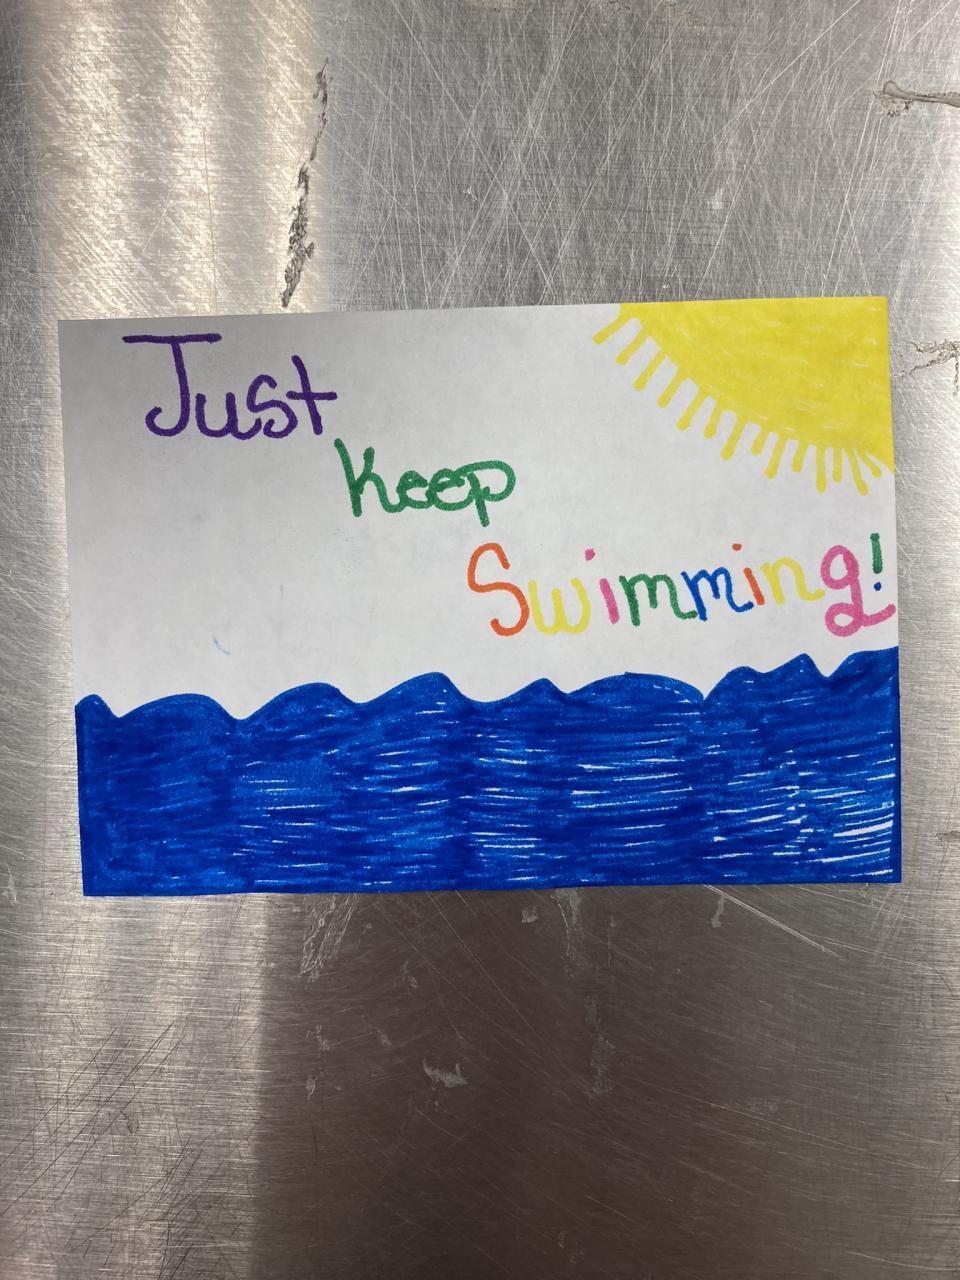 Just
Keep
Swimming!